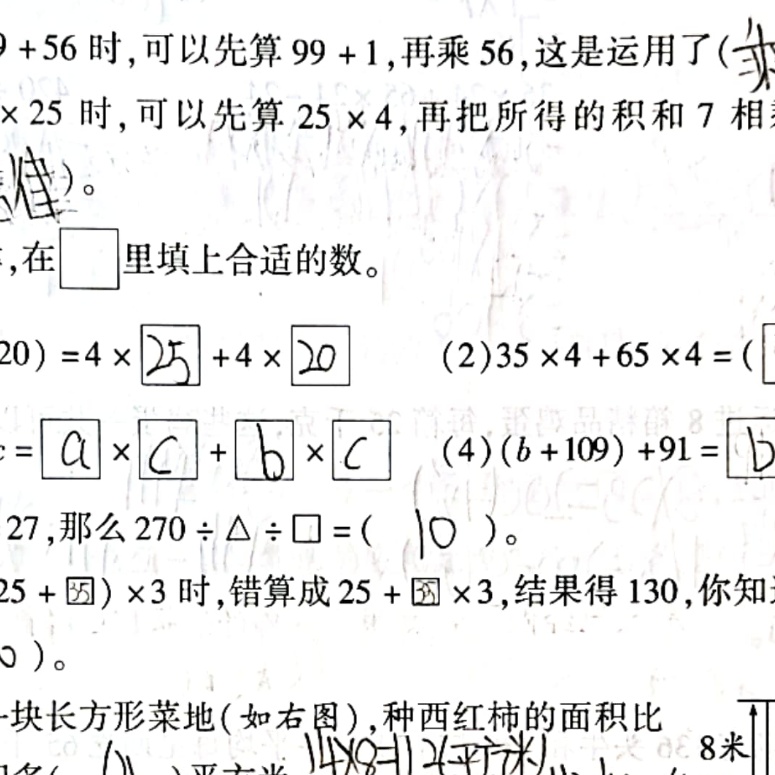 9 +56 时,可以先算 99 +1,再乘 56,这是运用了(乘
× 25 时,可以先算 25 ×4,再把所得的积和 7 相
律)。
,在□里填上合适的数。
20) =4 × 25 +4 × 20 (2)35 ×4 +65 ×4 = (
c = a × c + b × c (4)(b +109) +91 = b
27,那么 270 ÷ △ ÷ □ = ( 10 )。
25 + 35) ×3 时,错算成 25 + 35 ×3,结果得 130,你知
0 )。
一块长方形菜地(如右图),种西红柿的面积比
14×8=112(平方米) 8米